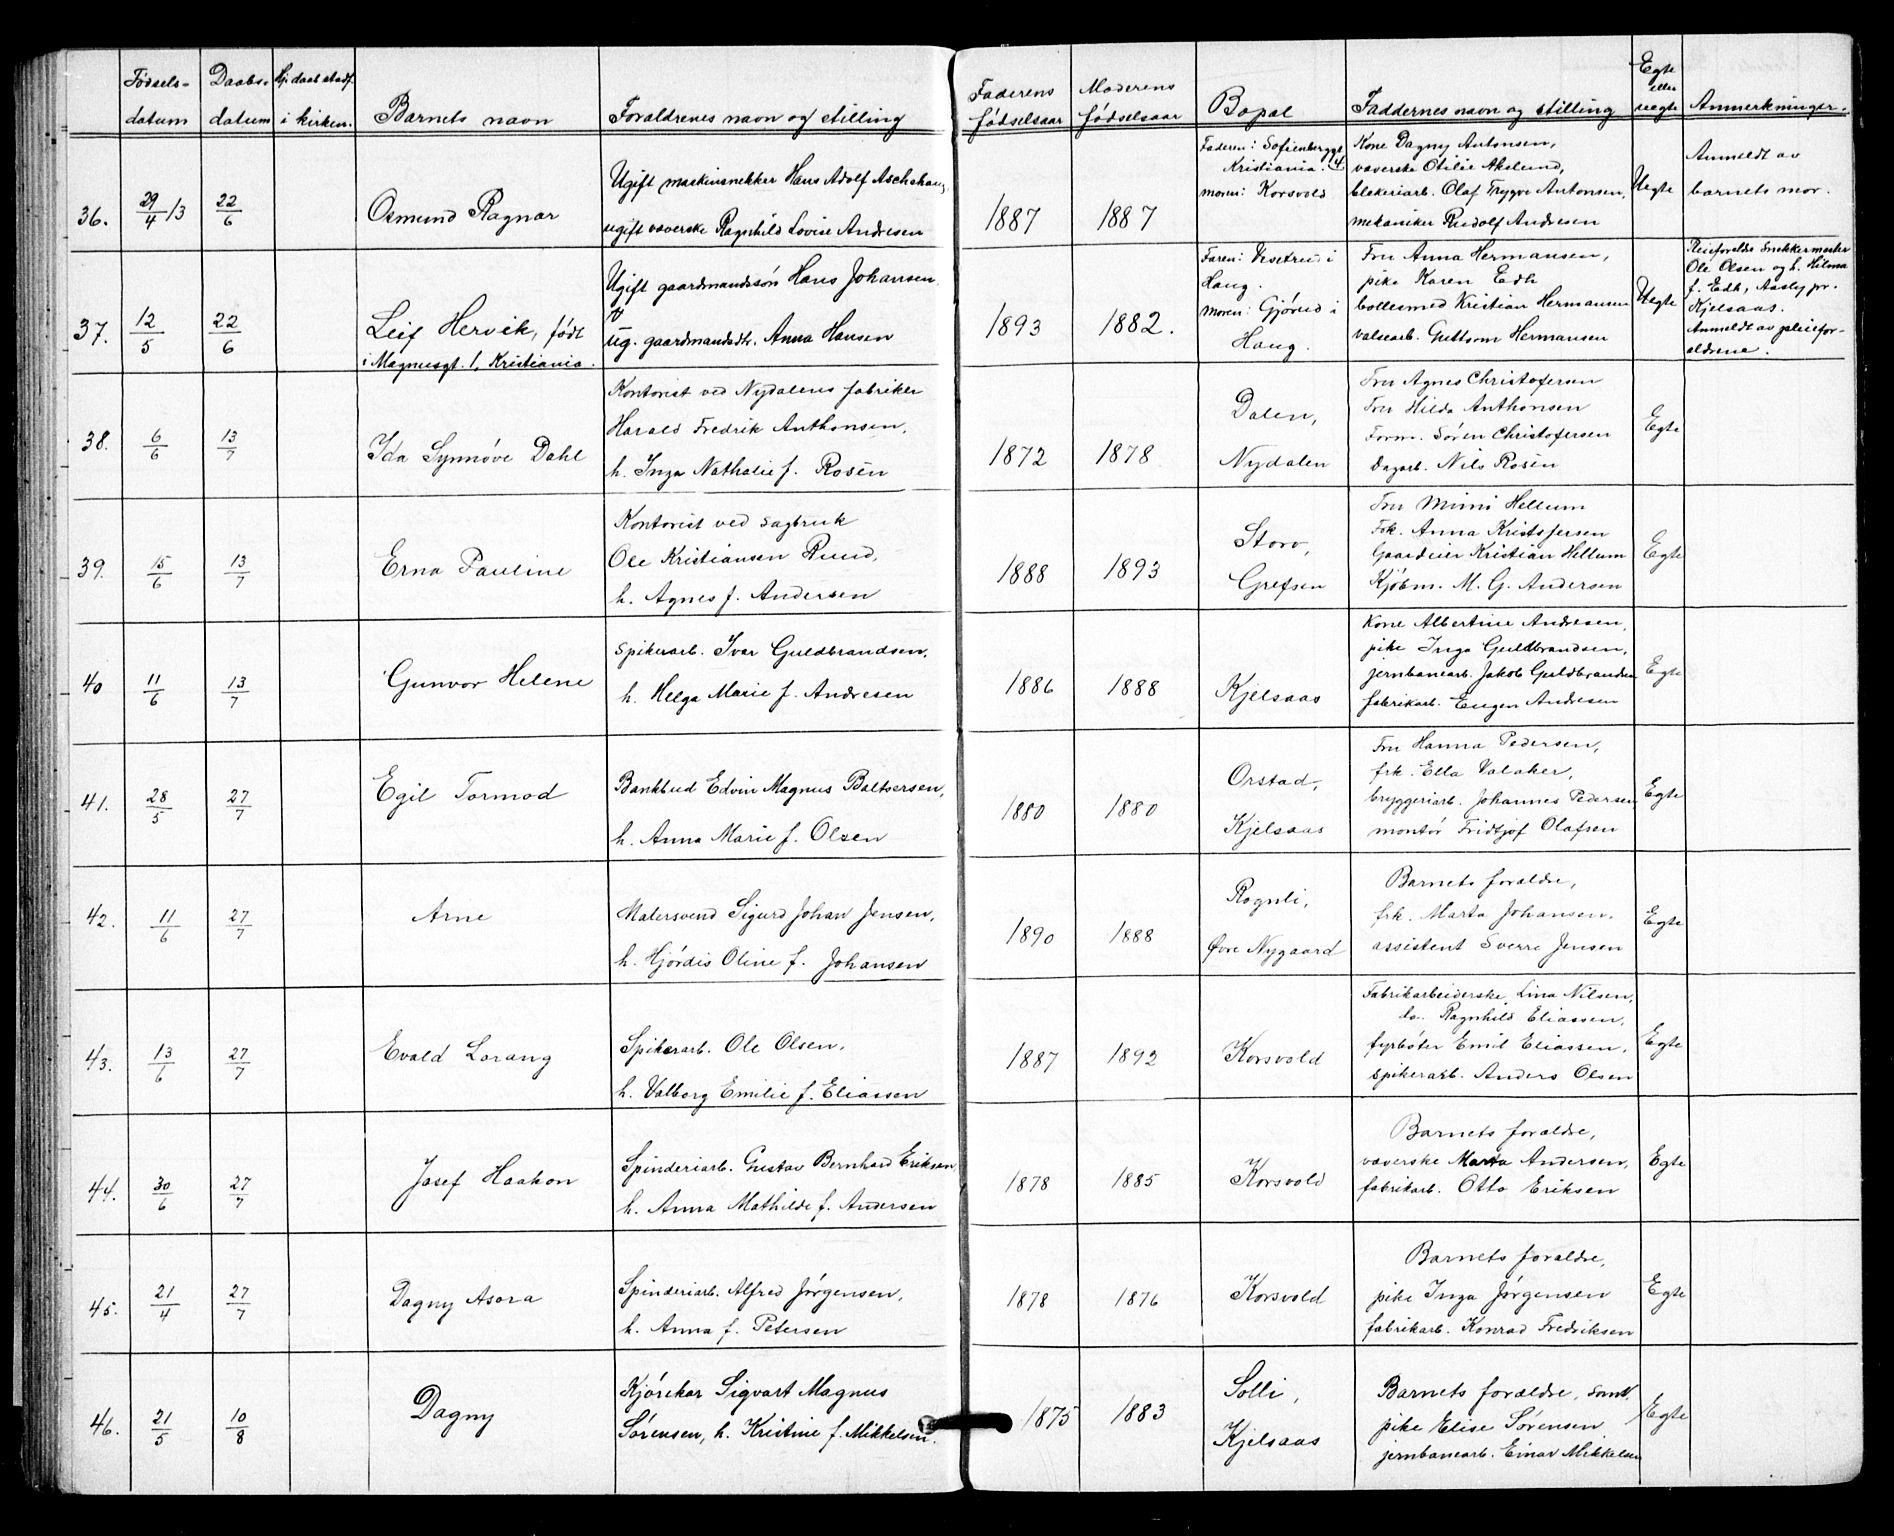 Fødsels- Daabs- Hj. daab stadf. Faderens Moderens Egte eller
datum datum i kirken. Barnets navn Forældrenes navn og stilling fødselsaar fødselsaar Bopæl Faddernes navn og stilling uegte Anmerkninger.
36. 29/4 13 22/6 Osmund Ragnar
Ugift maskinsnekker Hans Adolf
ugift væverske Ragnhild Lovise Andresen
1887 1887
Faderen: Sofienberggt 4.
Kristiania.
moren: Korsvold
Kone Dagny Antonsen,
væverske Otilie
blekeriarb. Olaf Trygve Antonsen,
mekaniker Rudolf Andresen
Uegte
Anmeldt av
barnets mor.
37. 12/5 22/6 Leif Hervik, født
i Magnusgt. 1, Kristiania.
Ugift gaardmandssøn Hans Johansen
ug. gaardmandsdtr. Anna Hansen
1893 1882.
Faren: Vesetrud i
Haug.
moren: Gjørud i
Haug.
Fru Anna Hermansen,
pike Karen Edh
boltesmed Kristian Hermansen
valsearb. Guttorm Hermansen
Uegte
Pleieforeldre Snekkermester
Ole Olsen og h. Hilma
f. Edh, Aasly pr.
Kjelsaas.
Anmeldt av pleiefor-
ældrene.
38. 6/6 13/7 Ida Synnøve Dahl
Kontorist ved Nydalens fabriker
Harald Fredrik Anthonsen,
h. Inga Nathalie f. Rosén
1872 1878
Dalen,
Nydalen
Fru Agnes Christofersen
Fru Hilda Anthonsen
Form. Søren Christofersen
Dagarb. Nils Rosén
Egte
39. 15/6 13/7 Erna Pauline
Kontorist ved sagbruk
Ole Kristiansen Ruud,
h. Agnes f. Andersen
1888 1893
Storo,
Grefsen
Fru Mimi Hellum
Frk. Anna Kristofersen
Gaardeier Kristian Hellum
Kjøbm. M. G. Andersen
Egte
40 11/6 13/7 Gunvor Helene
Spikerarb. Ivar Guldbrandsen,
h. Helga Marie f. Andresen
1886 1888
Kjelsaas
Kone Albertine Andresen,
pike Inga Guldbrandsen,
jernbanearb. Jakob Guldbrandsen
fabrikarb. Eugen Andresen
Egte
41. 28/5 27/7 Egil Tormod
Bankbud Edvin Magnus Baltsersen,
h. Anna Marie f. Olsen
1880 1880
Orstad,
Kjelsaas
Fru Hanna Pedersen,
frk. Ella Valaker,
bryggeriarb. Johannes Pedersen
montør Fridtjof Olafsen
Egte
42. 11/6 27/7 Arne
Malersvend Sigurd Johan Jensen,
h. Hjørdis Oline f. Johansen
1890 1888
Rognli,
Øvre Nygaard
Barnets forældre,
frk. Marta Johansen.
assistent Sverre Jensen
Egte
43. 13/6 27/7 Evald Lorang
Spikerarb. Ole Olsen,
h. Valborg Emilie f. Eliassen
1887 1892
Korsvold
Fabrikarbeiderske Lina Nilsen,
do. Ragnhild Eliassen,
fyrbøter Emil Eliassen,
spikerarb. Anders Olsen
Egte
44. 30/6 27/7 Josef Haakon
Spinderiarb. Gustav Bernhard Eriksen
h. Anna Mathilde f. Andersen
1878 1885
Korsvold
Barnets forældre,
væverske Marta Andersen,
fabrikarb. Otto Eriksen
Egte
45. 21/4 27/7 Dagny Asora
Spinderiarb. Alfred Jørgensen,
h. Anna f. Petersen
1878 1876
Korsvold
Barnets forældre,
pike Inga Jørgensen
fabrikarb. Konrad Fredriksen
Egte
46. 21/5 10/8 Dagny
Kjørekar Sigvart Magnus
Sørensen, h. Kristine f. Mikkelsen.
1875 1883
Solli,
Kjelsaas
Barnets forældre, samt
pike Elise Sørensen
jernbanearb. Einar Mikkelsen
Egte